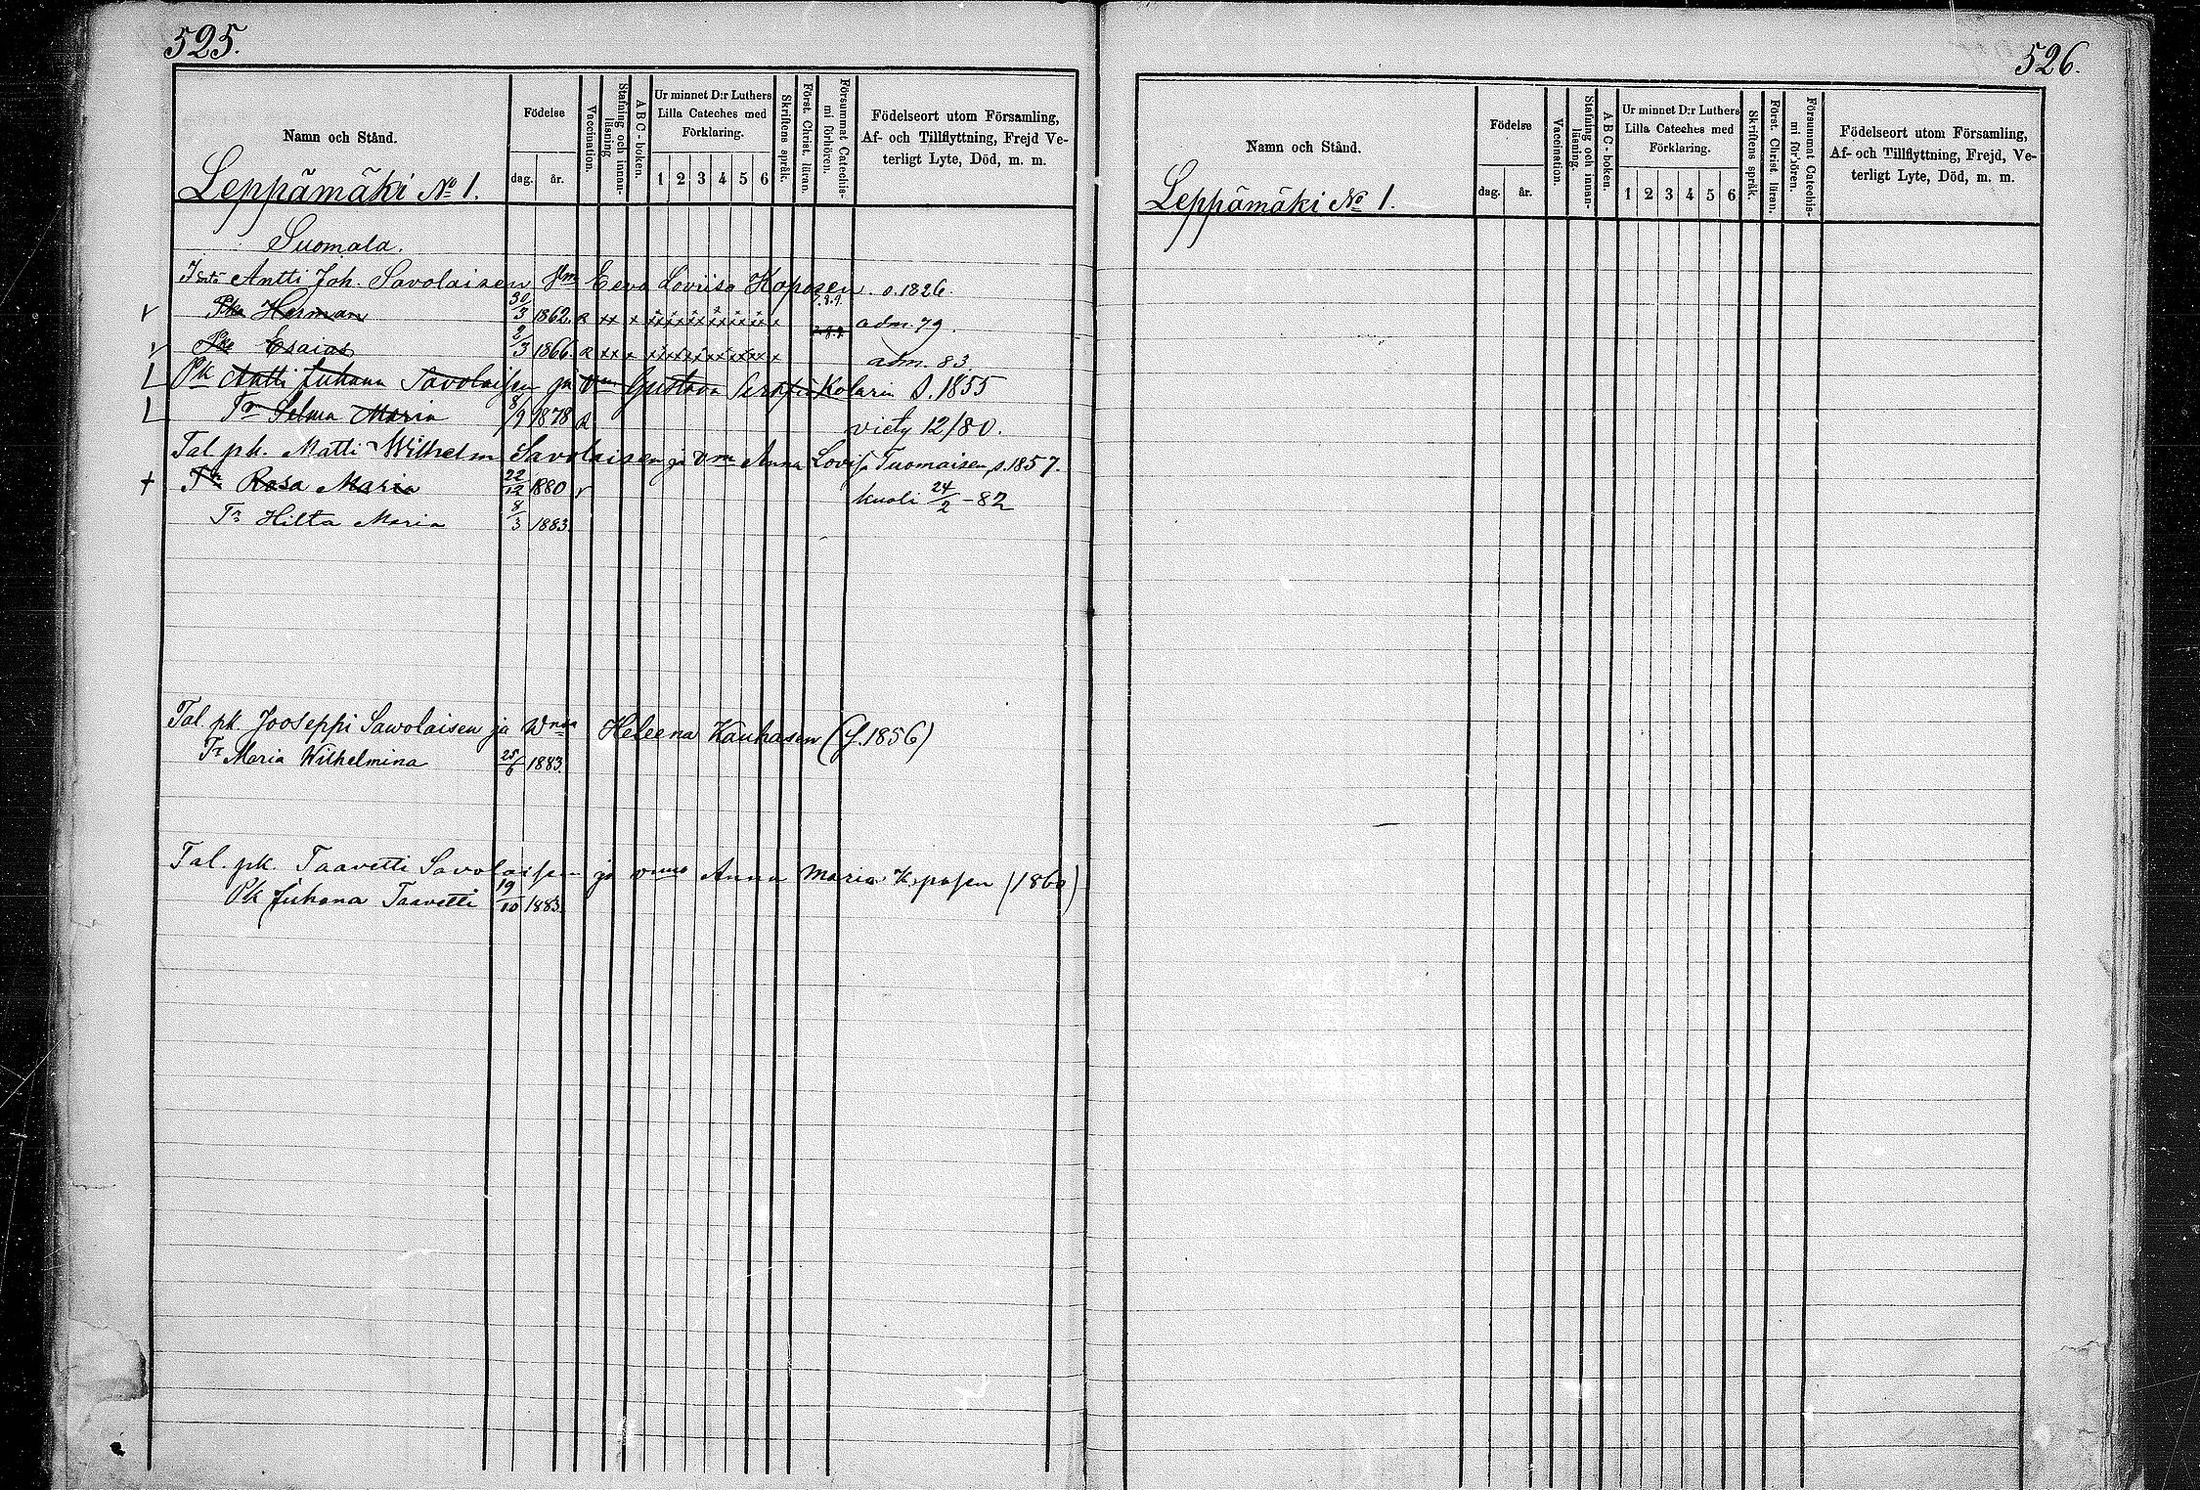 525.
Namn och Stånd.
Födelse
dag.
år.
Vaccination.
Stafning och innanläsning
ABC-boken.
Ur minnet D:r Luthers
Lilla Cateches med
Förklaring.
1 2 3 4 5 6
Skriftens språk.
Först. Christ. läran.
Försummat Catechismi förhören.
Födelseort utom Församling,
Af- och Tillflyttning, Frejd Ve-
terligt Lyte, Död, m. m.
Leppämäki No 1.
Suomala.
Antti Joh. Savolaisen Eeva Loviisa Koposen s. 1826.
Herman 30/3 1862. adm. 79.
Esaias 2/3 1866. adm. 83.
Pk Antti Juhana Savolaisen ja Vm Gustava Kolarin S. 1855
Tr Selma Maria 8/9 1878 viety 12/80.
Tal pk. Matti Wilhelm Savolaisen ja Vm Anna Lovisa Tuomaisen s. 1857.
Tr Rosa Maria 22/12 1880 kuoli 24/2 -82
Tr Hilta Maria 8/3 1883.
Tal pk. Jooseppi Sawolaisen ja Wmaa Heleena Kauhasen (f. 1856)
Tr Maria Wilhelmina 25/6 1883.
Tal. pk. Taavetti Savolaisen ja vmo Anna Maria Koposen (1860)
Pk Juhana Taavetti 19/10 1883.
526.
Namn och Stånd.
Födelse
dag.
år.
Vaccination.
Stafning och innanläsning.
ABC-boken.
Ur minnet D:r Luthers
Lilla Cateches med
Förklaring.
1 2 3 4 5 6
Skriftens språk.
Först. Christ. läran.
Försummat Catechismi förhören.
Födelseort utom Församling,
Af- och Tillflyttning, Frejd, Ve-
terligt Lyte, Död, m. m.
Leppämäki No 1.